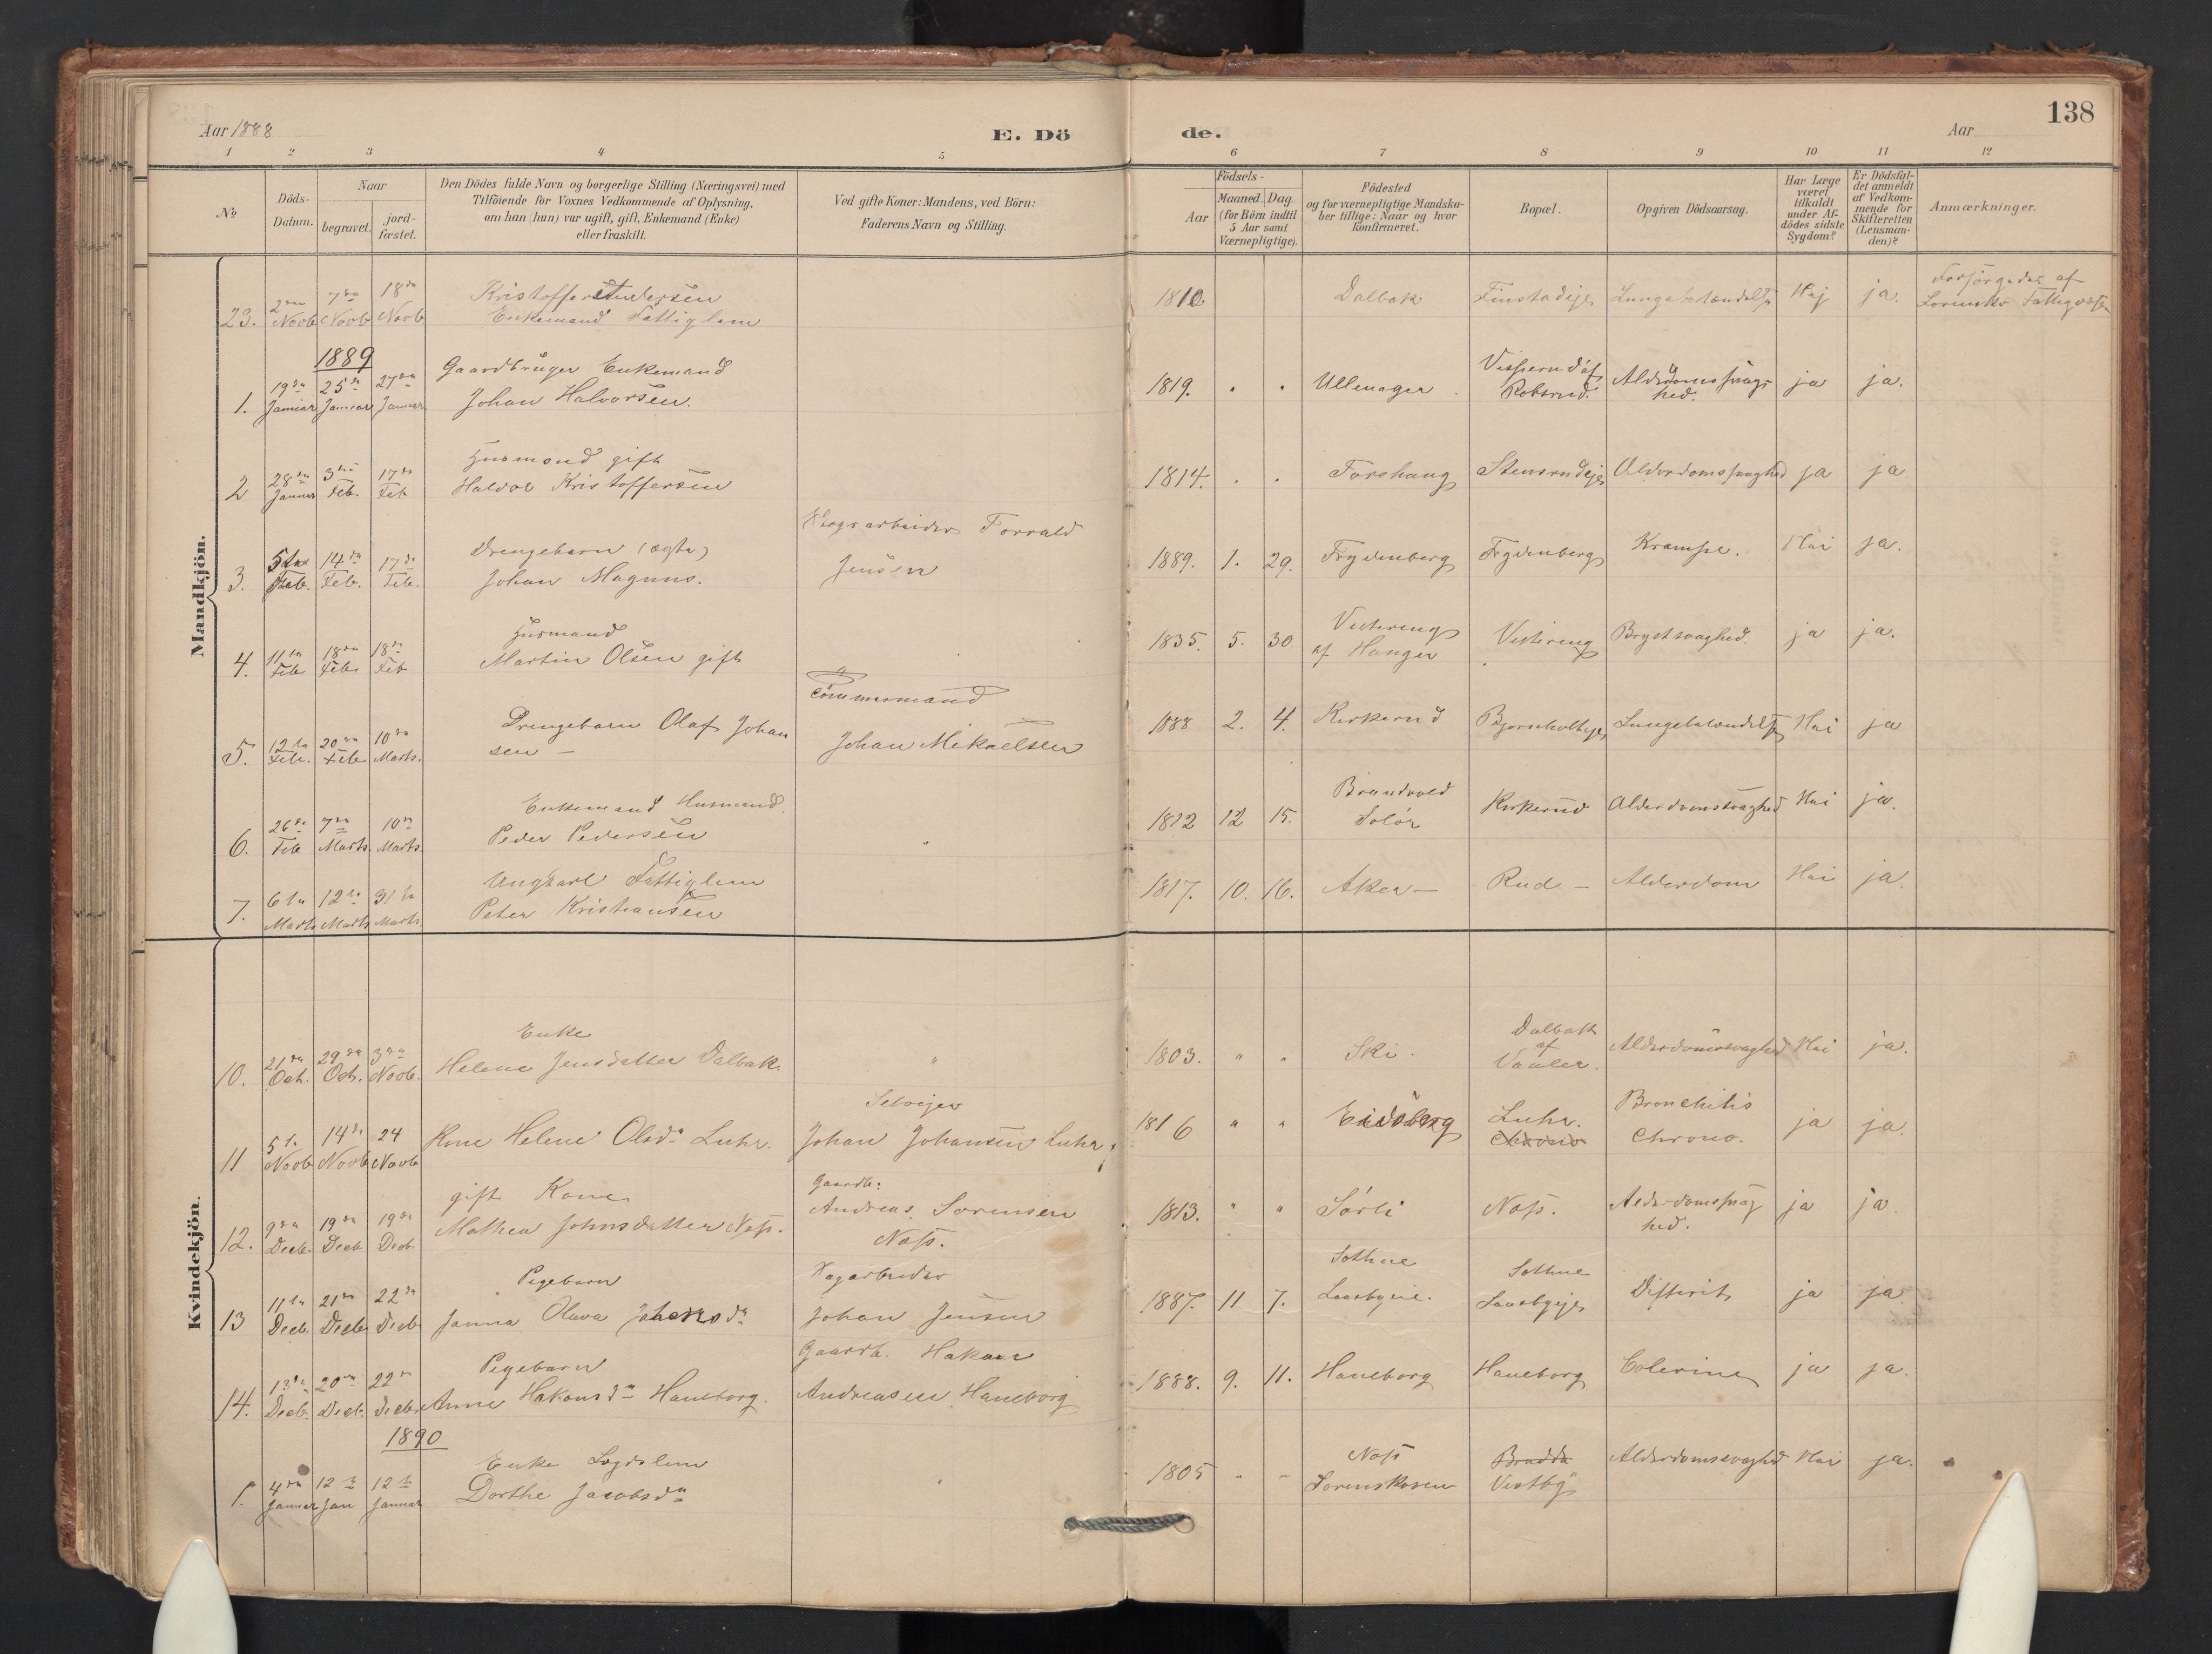 Aar 1888
E. Dö
de.
Aar
138
1 2 3 4 5 6 7 8 9 10 11 12
№
Döds-
Datum.
Naar
begravet.
jord-
fæstet.
Den Dödes fulde Navn og borgerlige Stilling (Næringsvei) med
Tilföiende for Voxnes Vedkommende af Oplysning,
om han (hun) var ugift, gift, Enkemand (Enke)
eller fraskilt.
Ved gifte Koner: Mandens, ved Börn:
Faderens Navn og Stilling.
Födsels-
Aar
Maaned. Dag.
(for Börn indtil
5 Aar samt
Værnepligtige).
Födested
og for værnepligtige Mandska-
ber tillige: Naar og hvor
konfirmeret.
Bopæl.
Opgiven Dödsaarsag.
Har Læge
været
tilkaldt
under Af-
dödes sidste
Sygdom?
Er Dödsfal-
det anmeldt
af Vedkom-
mende for
Skifteretten
(Lensman-
den)?
Anmærkninger.
Mandkjön.
23. 2den Novb 7de Novb 18de Novb
Kristoffer Andersen
Enkemand Fattiglem
1810. Dalbak Finstadeje Lungebetændelse Nej ja.
Forsörgedes af
Lorenskv Fattigvæsen
1889
1. 19de Januar 25de Januar 27de Januar
Gaardbruger Enkemand
Johan Halvorsen.
1819. " " Ullensager
Robsrud. Alderdomssvag-
hed. ja ja.
2 28de Januar 3die Feb. 17de Feb
Husmand gift
Haldor Kristoffersen
1814. " " Forshaug Stensrudeje Alderdomssvaghed ja ja
3. 5te Feb. 14de Feb. 17de Feb.
Drengebarn (ægte)
Johan Magnus.
Torvald
Jensen
1889. 1. 29. Frydenberg Frydenberg Krampe. Nei ja.
4. 11te Feb 18de Feb 18de Feb
Husmand
Martin Olsen gift
"
1835. 5. 30. Vestereng
af Hanger Vestereng Brystsvaghed. ja ja.
5. 12te Feb. 20de Feb 10de Marts.
Drengebarn Olaf Johan
sen —
Tömmermand
Johan Mikaelsen
1888 2. 4. Kirkerud Bjornholteje Lungebetændelse Nei ja
6. 26de Feb 7de Marts. 10de Marts.
Enkemand Husmand.
Peder Pedersen
"
1812 12 15. Brandvold
Solör Kirkerud Alderdomssvaghed Nei ja.
7. 6te Marts 12te Marts 31te Marts
Ungkarl Fattiglem
Peter Kristiansen
1817. 10. 16. Aker — Rud — Alderdom Nei ja.
Kvindekjön.
10. 21de Oct. 29de Oct. 3die Novb.
Enke
Helene Jensdatter Dalbak.
"
1803. " " Ski. Dalbakk
af
Vaaler. Alderdomssvaghed Nei ja.
11 5te Novb 14de Novb 24 Novb
Kone Helene Olsdr Luhr.
Selvejer
Johan Johansen Luhr
1816 " " Eidsberg Luhr.
Chrono
Bronchitis
Chrono. ja ja.
12. 9de Decb. 19de Decb 19de Decb
gift Kone
Mathea Johnsdatter Nass.
Gaardb:
Andreas Sorensen
Nass.
1813. " " Sörli Nass. Alderdomssvag
hed. ja ja.
13 11te Decb. 21de Decb 22de Decb
Pigebarn
Janna Olava Johansdr
Johan Jensen
1887. 11 7. Sothne
Laasbyeie. Sothne
Laasbyeje Difterit ja ja
14. 13de Decb. 20de Decb. 22de Decbr
Pigebarn
Anne Hakonsdr Haneborg.
Gaardb. Hakan
Andreasen Haneborg
1888. 9. 11. Haneborg Haneborg Colerine ja ja.
1890
1. 4de Januar 12te Jan 12te Januar
Enke Lægdslem
Dorthe Jacobsdr
"
1805 " " Nass
Lorenskoven Vestby Alderdomssvaghed Nei ja.